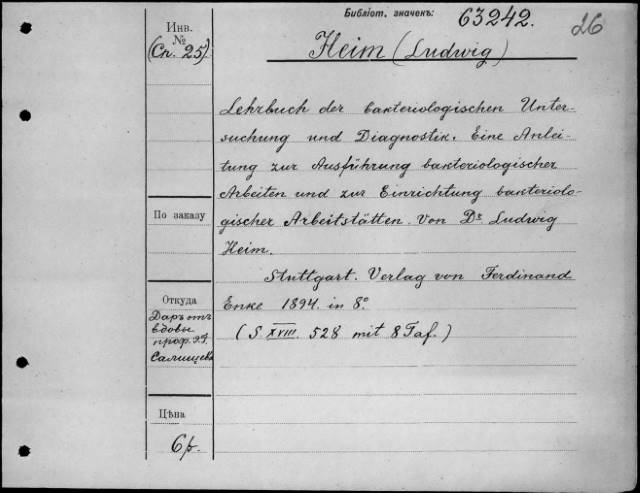 Библіот. значекъ: 63242.
26
Инв. №
(Сп. 25)
Heim (Ludwig)
Lehrbuch der bakteriologischen Unter-
suchung und Diagnostik. Eine Anlei-
tung zur Ausführung bakteriologischer
Arbeiten und zur Einrichtung bakteriolo-
gischer Arbeitstätten. Von Dr Ludwig
Heim.
Stuttgart. Verlag von Ferdinand
Enke 1894. in 8°
(S. XVIII. 528 mit 8 Taf.)
По заказу
Откуда
Даръ отъ
вдовы
проф. Э.Г.
Салищева
Цѣна
6 р.